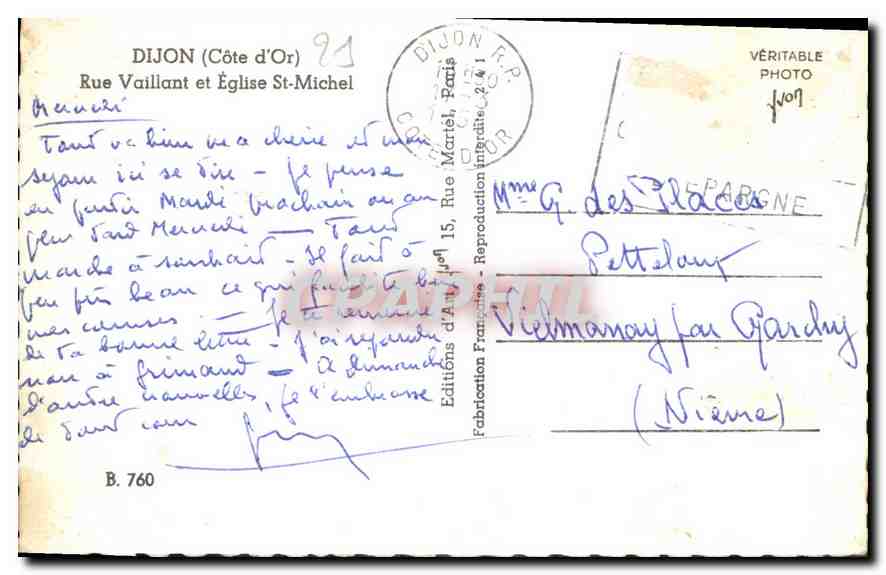 DIJON (Côte d'Or)
21
Rue Vaillant et Église St-Michel
Mercredi
Tout va bien ma chérie et mon
séjour ici se tire - Je pense
en partir Mardi prochain ou au
plus tard Mercredi - Tout
marche à souhait - Il fait à
peu près beau ce qui facilite bien
mes courses - Je te remercie
de ta bonne lettre - J'ai répondu
non à Grimaud - A dimanche
d'autre nouvelles, je t'embrasse
de tout cœur
B. 760
Editions d'Art Yvon 15, Rue Martel, Paris
Fabrication Française - Reproduction interdite
DIJON R.P.
COTE D'OR
VÉRITABLE
PHOTO
yvon
EPARGNE
Mme G. des Places
Petteloup
Vielmanay par Garchy
(Nièvre)
CPAPHIL